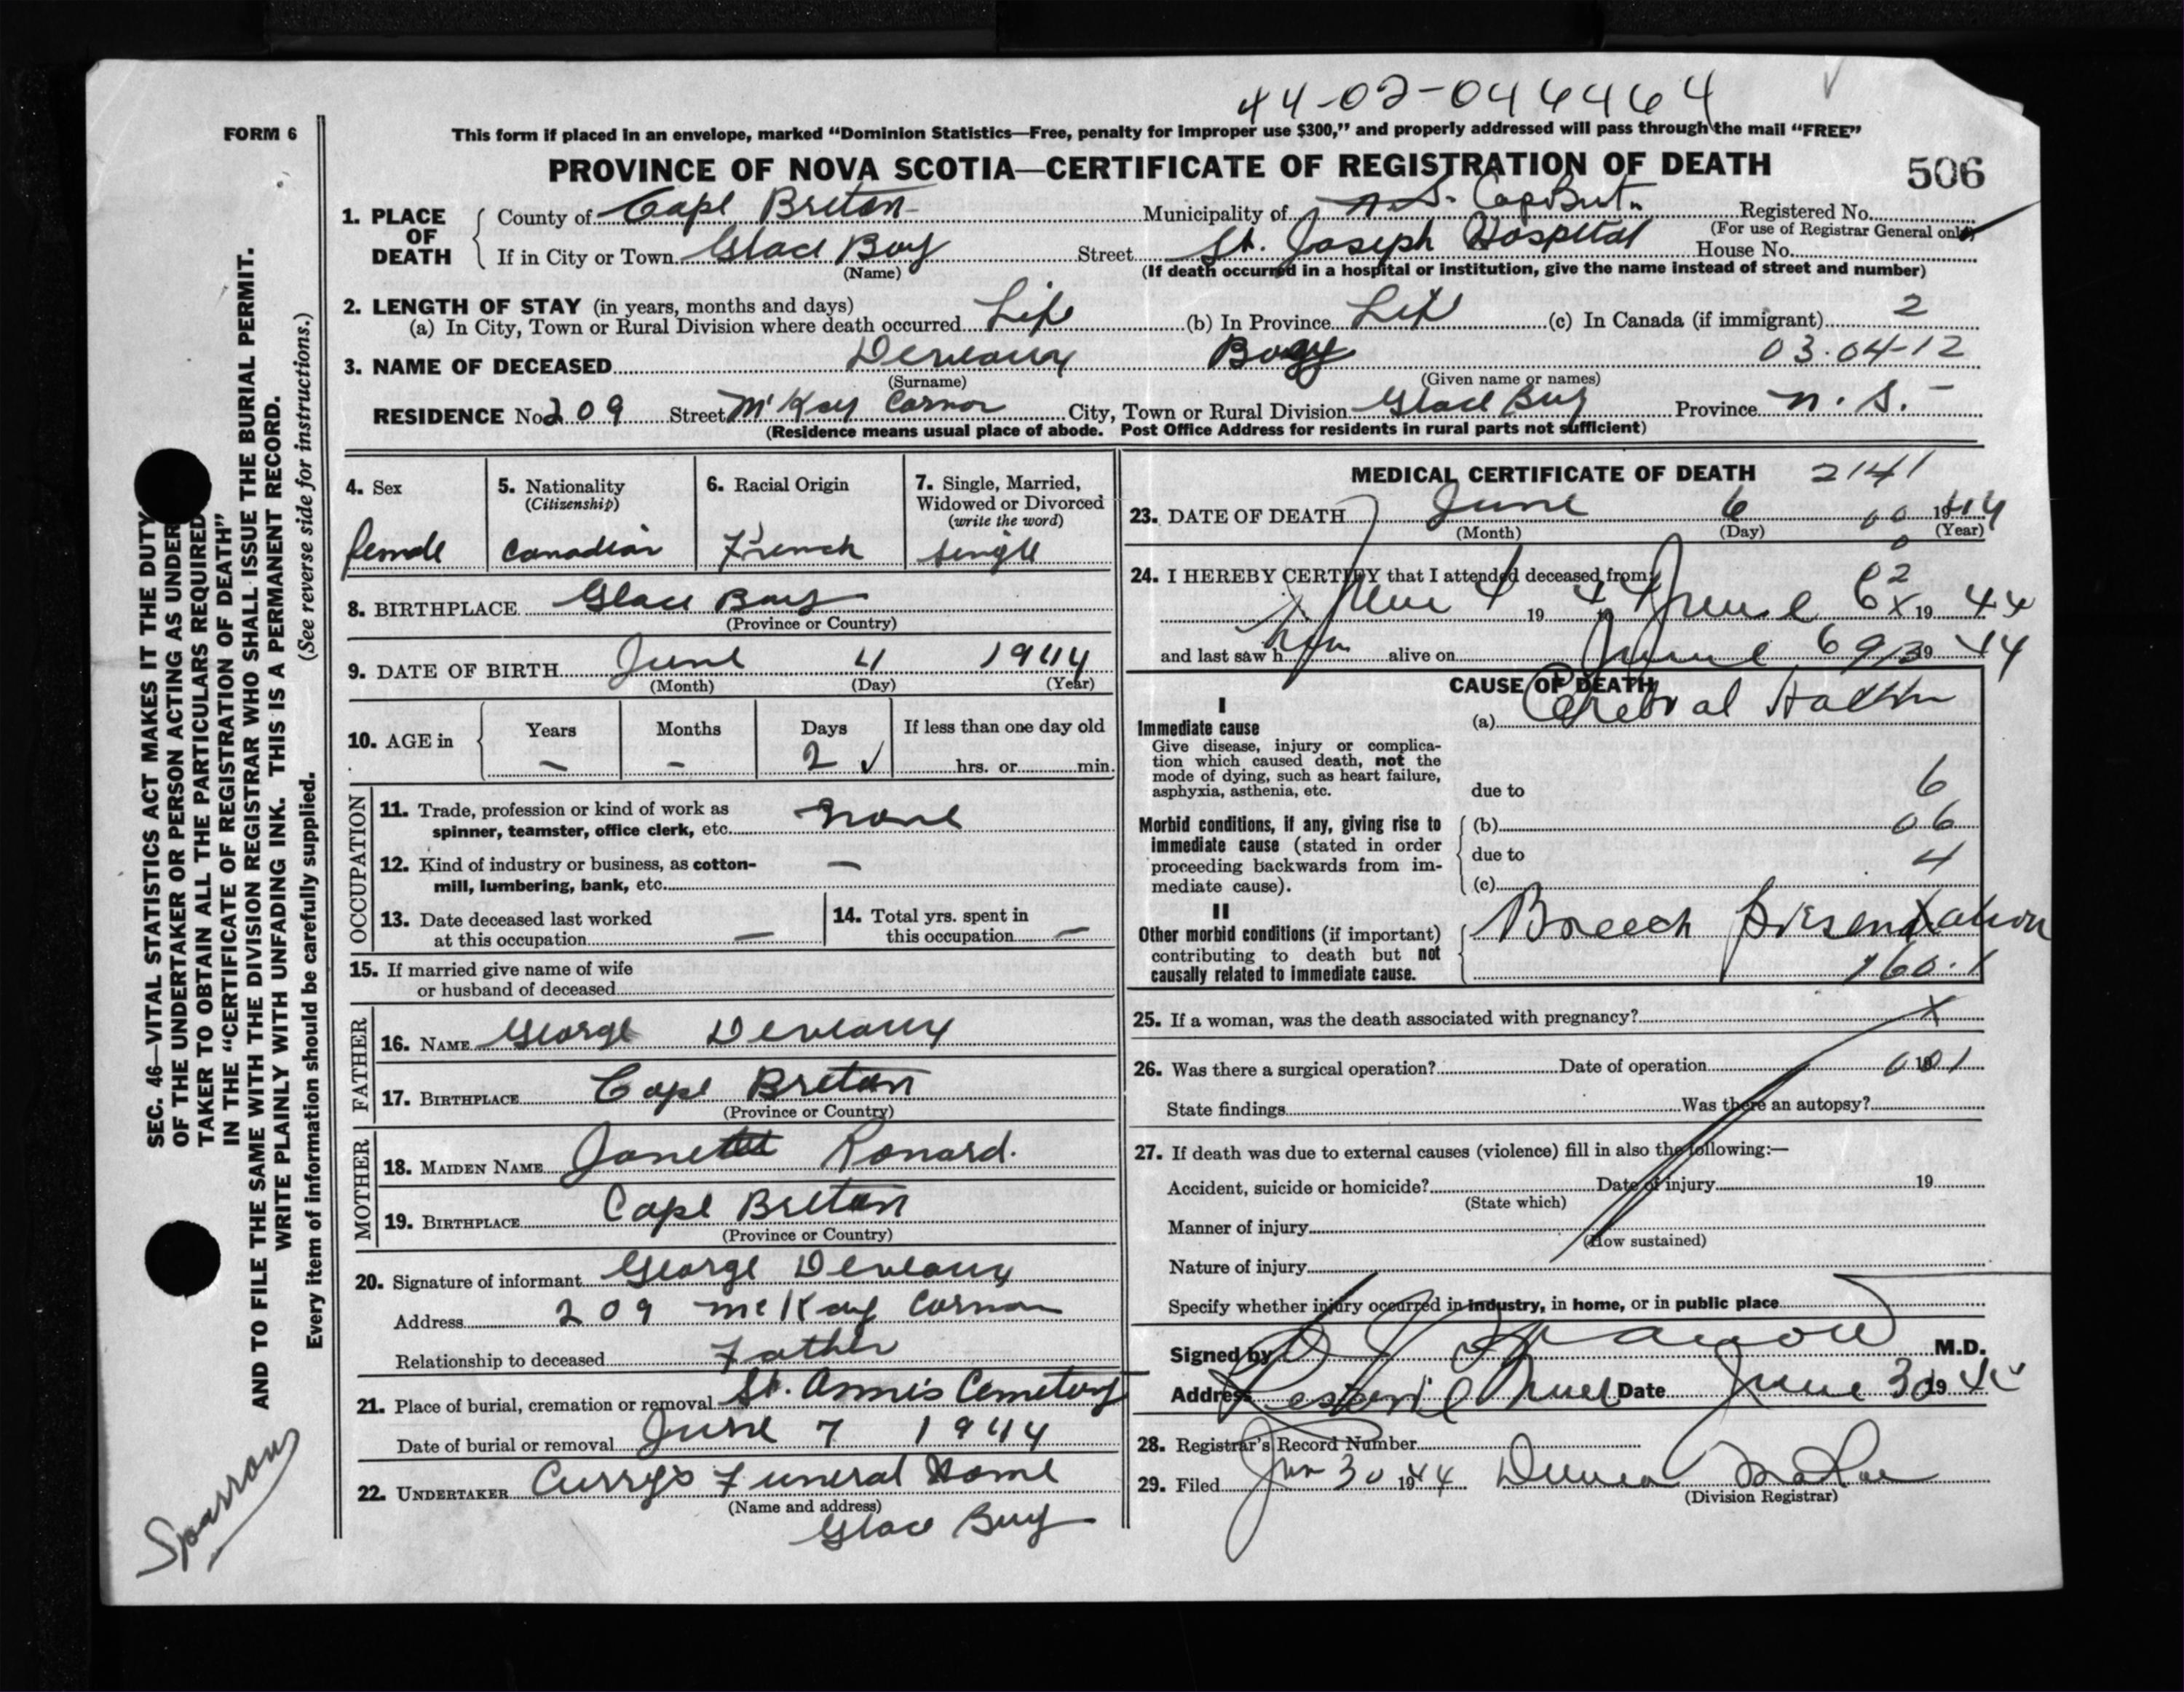 44-02-046464
FORM 6
This form if placed in an envelope, marked “Dominion Statistics—Free, penalty for improper use $300,” and properly addressed will pass through the mail “FREE”
PROVINCE OF NOVA SCOTIA—CERTIFICATE OF REGISTRATION OF DEATH
506
1. PLACE OF DEATH
County of Cape Breton
Municipality of N. S. Cape Breton
Registered No.
(For use of Registrar General only)
If in City or Town Glace Bay
(Name)
Street St. Joseph Hospital
House No.
(If death occurred in a hospital or institution, give the name instead of street and number)
2. LENGTH OF STAY (in years, months and days)
(a) In City, Town or Rural Division where death occurred Life (b) In Province Life (c) In Canada (if immigrant) 2
3. NAME OF DECEASED Deveaux 03.04-12
(Surname) (Given name or names)
RESIDENCE No 209 Street McKay Cornor City, Town or Rural Division Glace Bay Province N. S.
(Residence means usual place of abode. Post Office Address for residents in rural parts not sufficient)
4. Sex
female
5. Nationality
(Citizenship)
Canadian
6. Racial Origin
French
7. Single, Married,
Widowed or Divorced
(write the word)
single
8. BIRTHPLACE Glace Bay
(Province or Country)
9. DATE OF BIRTH June 4 1944
(Month) (Day) (Year)
10. AGE in
Years Months Days If less than one day old
— — 2 ✓ hrs. or min.
OCCUPATION
11. Trade, profession or kind of work as
spinner, teamster, office clerk, etc. None
12. Kind of industry or business, as cotton-
mill, lumbering, bank, etc. —
13. Date deceased last worked
at this occupation —
14. Total yrs. spent in
this occupation —
15. If married give name of wife
or husband of deceased
FATHER
16. NAME George Deveaux
17. BIRTHPLACE Cape Breton
(Province or Country)
MOTHER
18. MAIDEN NAME Janette Ronard.
19. BIRTHPLACE Cape Breton
(Province or Country)
20. Signature of informant George Deveaux
Address 209 McKay Cornor
Relationship to deceased Father
21. Place of burial, cremation or removal St. Anne's Cemetery
Date of burial or removal June 7 1944
22. UNDERTAKER Curry's Funeral Home
(Name and address)
Glace Bay
MEDICAL CERTIFICATE OF DEATH 2141
23. DATE OF DEATH June 6 1944
(Month) (Day) (Year)
24. I HEREBY CERTIFY that I attended deceased from:
June 4 19 44 to June 6 19 44
and last saw h alive on June 6 19 44
CAUSE OF DEATH
I
Immediate cause
Give disease, injury or complica-
tion which caused death, not the
mode of dying, such as heart failure,
asphyxia, asthenia, etc.
(a) Cerebral
due to 6
Morbid conditions, if any, giving rise to
immediate cause (stated in order
proceeding backwards from im-
mediate cause).
(b) 06
due to 4
(c)
II
Other morbid conditions (if important)
contributing to death but not
causally related to immediate cause.
Breech presentation
160.1
25. If a woman, was the death associated with pregnancy? X
26. Was there a surgical operation? Date of operation 19
State findings Was there an autopsy?
27. If death was due to external causes (violence) fill in also the following:—
Accident, suicide or homicide? Date of injury 19
(State which)
Manner of injury
(How sustained)
Nature of injury
Specify whether injury occurred in industry, in home, or in public place
Signed by M.D.
Address Date June 30 19 44
28. Registrar's Record Number
29. Filed Jun 30 1944
(Division Registrar)
SEC. 46—VITAL STATISTICS ACT MAKES IT THE DUTY
OF THE UNDERTAKER OR PERSON ACTING AS UNDER
TAKER TO OBTAIN ALL THE PARTICULARS REQUIRED
IN THE “CERTIFICATE OF REGISTRATION OF DEATH”
AND TO FILE THE SAME WITH THE DIVISION REGISTRAR WHO SHALL ISSUE THE BURIAL PERMIT.
WRITE PLAINLY WITH UNFADING INK. THIS IS A PERMANENT RECORD.
Every item of information should be carefully supplied. (See reverse side for instructions.)
Sparrow